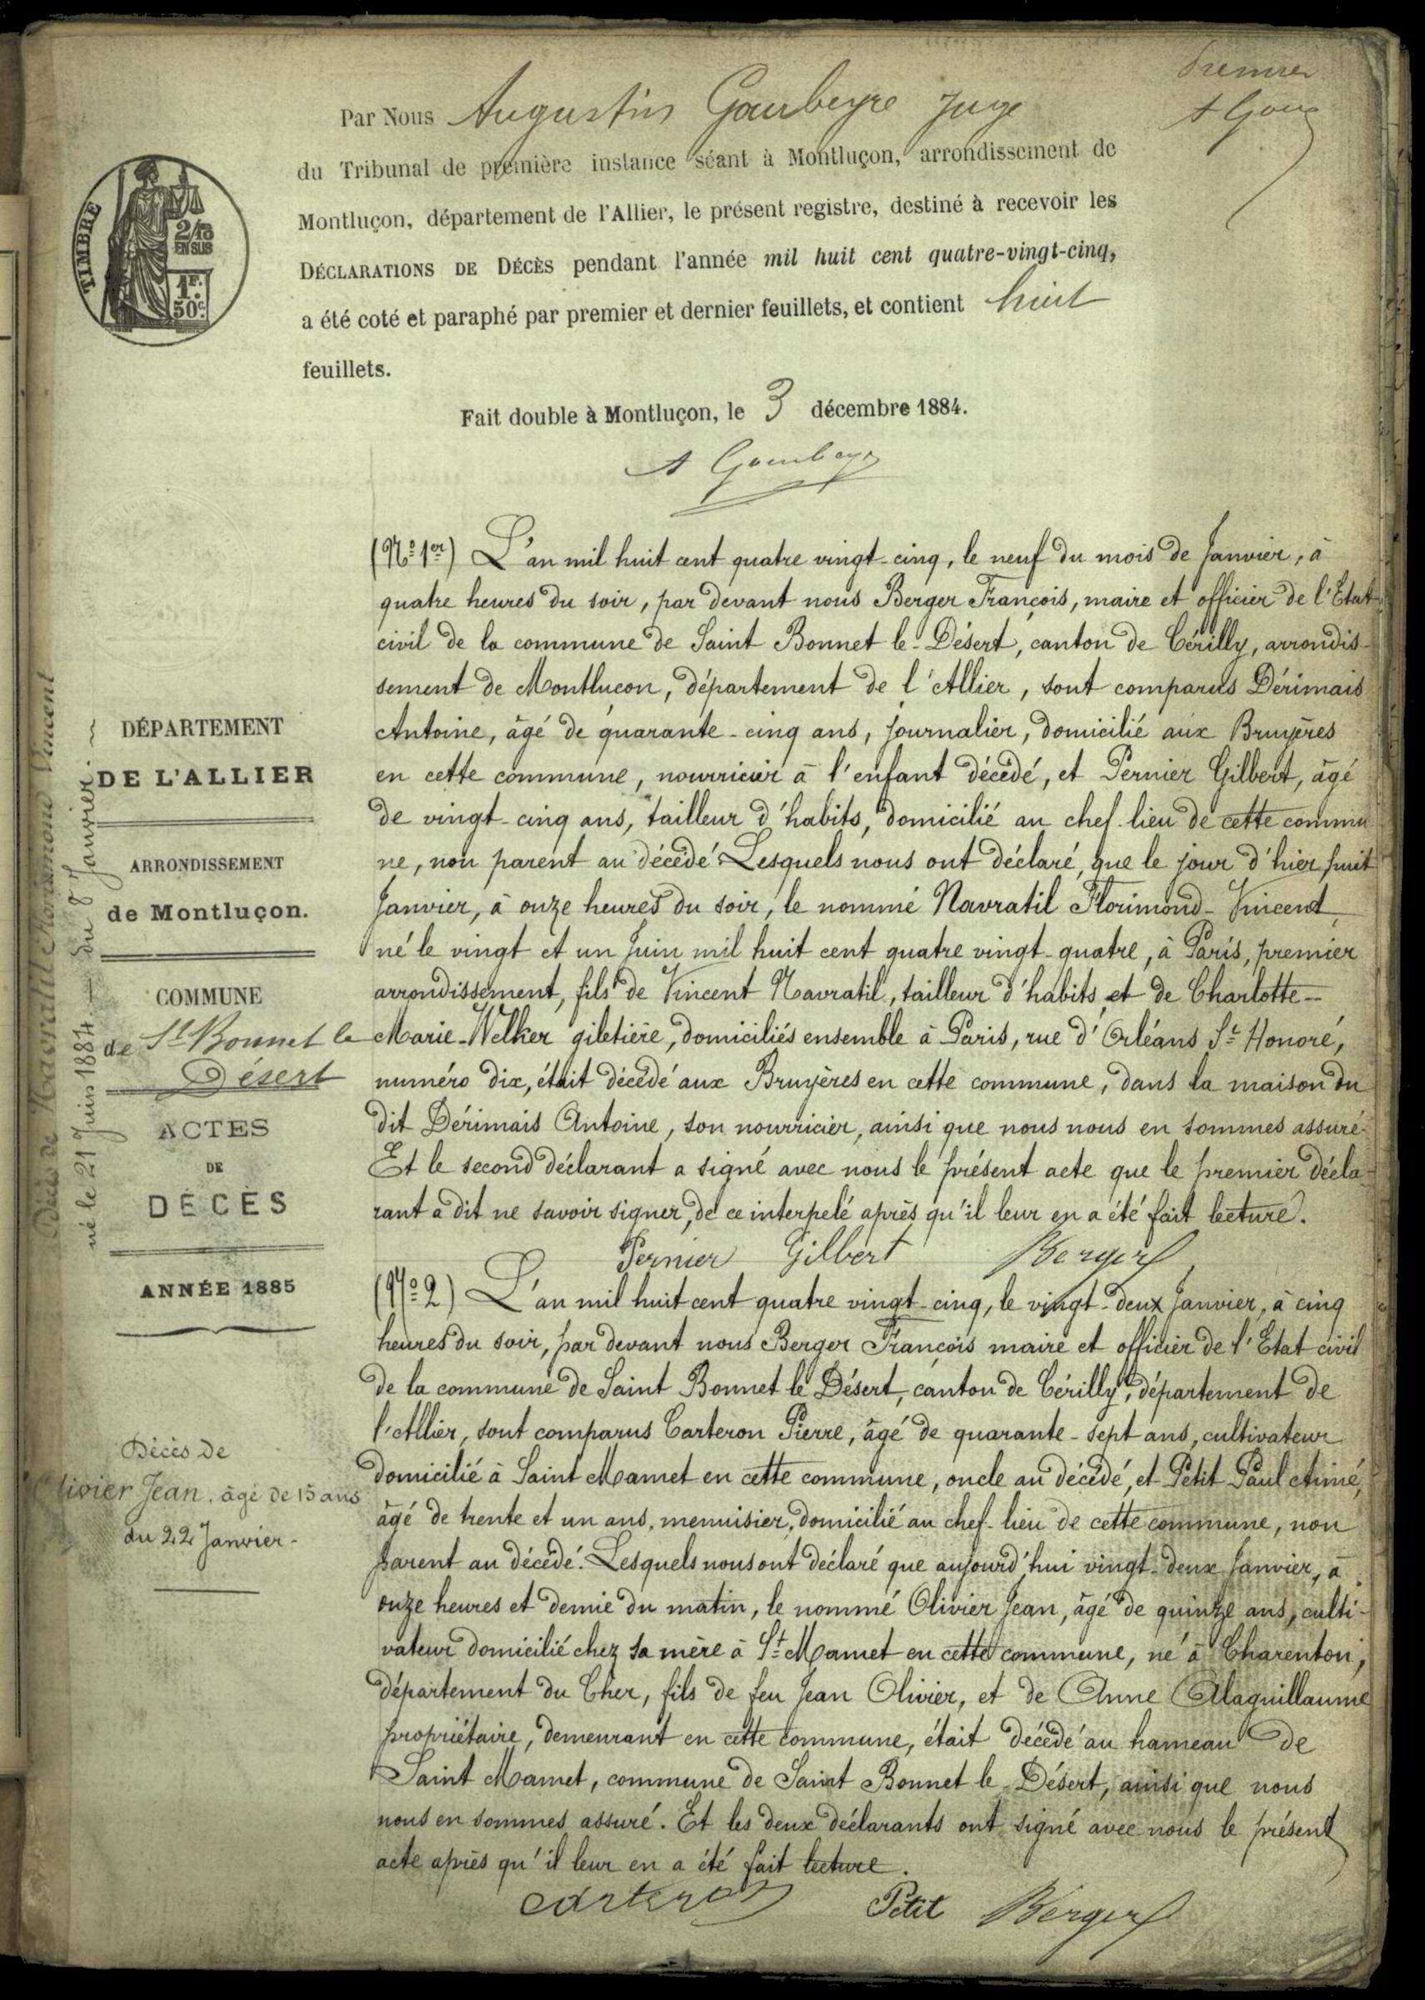 Premier
A Gou
Par Nous Augustin Gaubeyre Juge
du Tribunal de première instance séant à Montluçon, arrondissement de
Montluçon, département de l'Allier, le présent registre, destiné à recevoir les
DÉCLARATIONS DE DÉCÈS pendant l'année mil huit cent quatre-vingt-cinq,
a été coté et paraphé par premier et dernier feuillets, et contient huit
feuillets.
Fait double à Montluçon, le 3 décembre 1884.
A Gaubeyre
TIMBRE
2/10
EN SUS
1F.
50c
DÉPARTEMENT
DE L'ALLIER
ARRONDISSEMENT
de Montluçon.
COMMUNE
de St Bonnet le
Désert
ACTES
DE
DÉCÈS
ANNÉE 1885
Décès de Navratil Florimond Vincent
né le 21 Juin 1884. — du 8 Janvier. —
(No 1er) L'an mil huit cent quatre vingt-cinq, le neuf du mois de Janvier, à
quatre heures du soir, par devant nous Berger François, maire et officier de l'Etat
civil de la commune de Saint Bonnet le-Désert, canton de Cérilly, arrondis-
sement de Montlucon, département de l'Allier, sont comparus Dérimais
Antoine, âgé de quarante-cinq ans, journalier, domicilié aux Bruyères
en cette commune, nourricier à l'enfant décédé, et Pernier Gilbert, âgé
de vingt-cinq ans, tailleur d'habits, domicilié au chef-lieu de cette commu
ne, non parent au décédé Lesquels nous ont déclaré, que le jour d'hier huit
Janvier, à onze heures du soir, le nommé Navratil Florimond-Vincent,
né le vingt et un Juin mil huit cent quatre vingt-quatre, à Paris, premier
arrondissement, fils de Vincent Navratil, tailleur d'habits et de Charlotte-
Marie-Welker giletière, domiciliés ensemble à Paris, rue d'Orléans St Honoré,
numéro dix, était décédé aux Bruyères en cette commune, dans la maison du
dit Dérimais Antoine, son nourricier, ainsi que nous nous en sommes assuré.
Et le second déclarant a signé avec nous le présent acte que le premier décla-
rant a dit ne savoir signer, de ce interpelé après qu'il leur en a été fait lecture.
Pernier Gilbert Berger
Décès de
Olivier Jean. âgé de 15 ans
du 22 Janvier-
(No 2) L'an mil huit cent quatre vingt-cinq, le vingt-deux Janvier, à cinq
heures du soir, par devant nous Berger François maire et officier de l'Etat civil
de la commune de Saint Bonnet le Désert, canton de Cérilly, département de
l'Allier, sont comparus Carteron Pierre, âgé de quarante-sept ans, cultivateur
domicilié à Saint Mamet en cette commune, oncle au décédé, et Petit Paul Aimé,
âgé de trente et un ans, menuisier, domicilié au chef-lieu de cette commune, non
parent au décédé. Lesquels nous ont déclaré que aujourd'hui vingt-deux Janvier, à
onze heures et demie du matin, le nommé Olivier Jean, âgé de quinze ans, culti-
vateur domicilié chez sa mère à St Mamet en cette commune, né à Charenton,
département du Cher, fils de feu Jean Olivier, et de Anne Alaguillaume
propriétaire, demeurant en cette commune, était décédé au hameau de
Saint Mamet, commune de Saint Bonnet le-Désert, ainsi que nous
nous en sommes assuré. Et les deux déclarants ont signé avec nous le présent
acte après qu'il leur en a été fait lecture.
Carteron Petit Berger